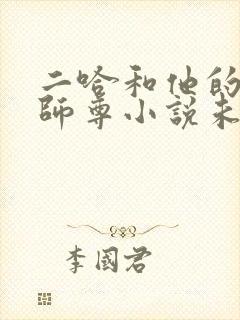 二哈和他的
師尊小説未
李國君